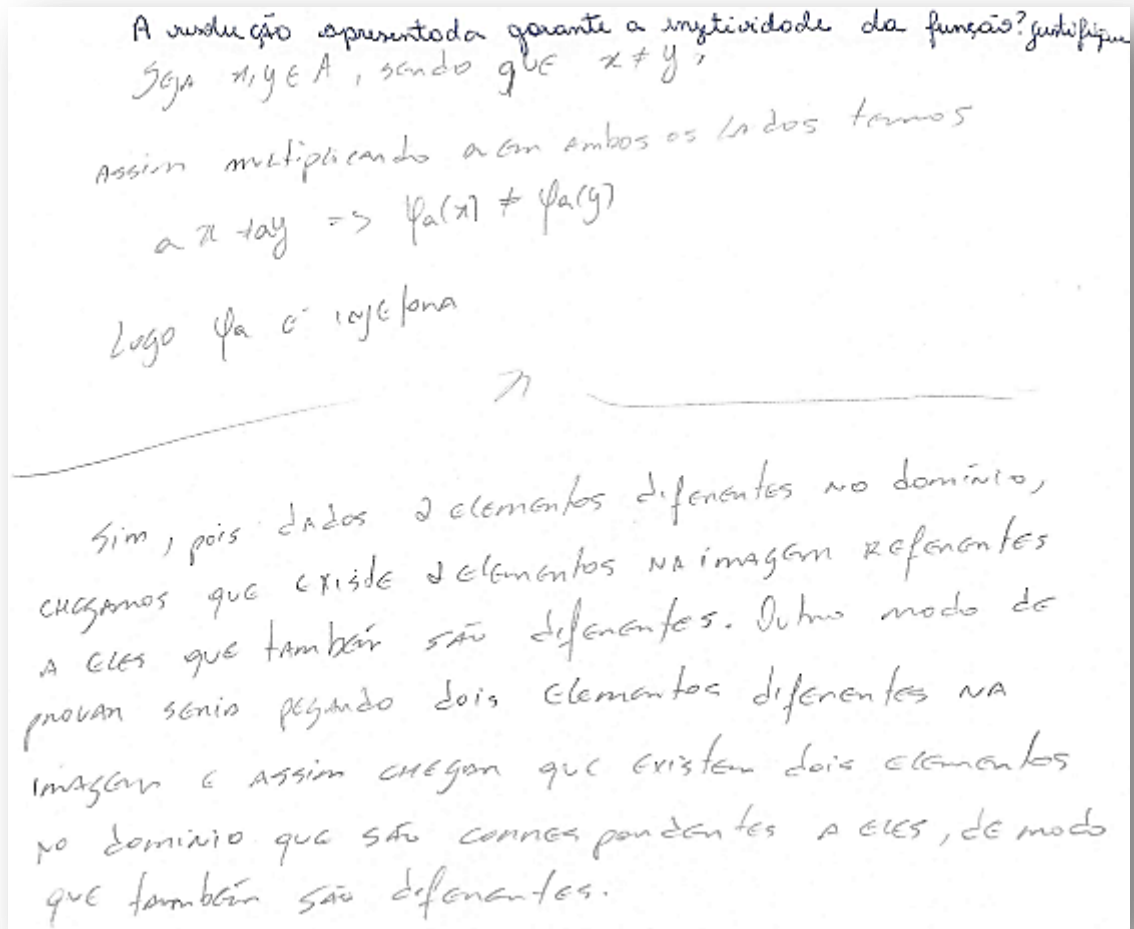 A resolução apresentada garante a injetividade da função? Justifique
Seja x, y ∈ A, sendo que x ≠ y,
Assim multiplicando a em ambos os lados temos
a x ≠ ay => φa(x) ≠ φa(y)
Logo φa é injetora
Sim, pois dados 2 elementos diferentes no domínio,
chegamos que existe 2 elementos na imagem referentes
a eles que também são diferentes. Outro modo de
provar seria pegando dois elementos diferentes na
imagem e assim chegar que existem dois elementos
no domínio que são correspondentes a eles, de modo
que também são diferentes.